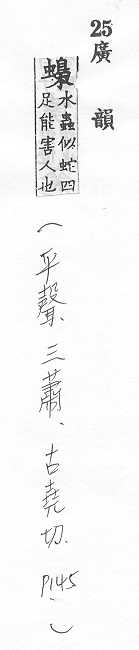 25廣韻
蟂水蟲似蛇四
足能害人也
(平聲、三蕭、古堯切. P145)